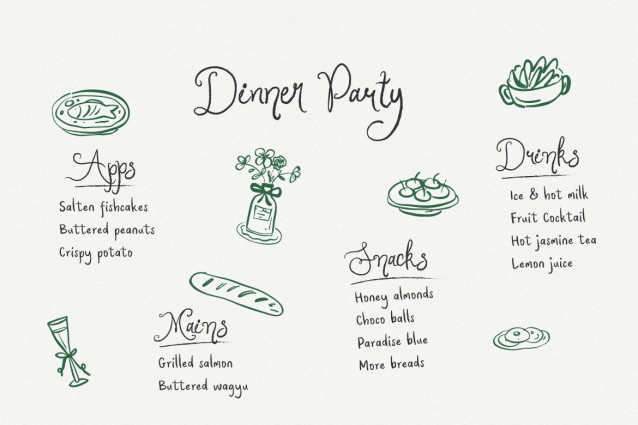 Dinner Party
Apps
Salten fishcakes
Buttered peanuts
Crispy potato
Mains
Grilled salmon
Buttered wagyu
Snacks
Honey almonds
Choco balls
Paradise blue
More breads
Drinks
Ice & hot milk
Fruit Cocktail
Hot jasmine tea
Lemon juice